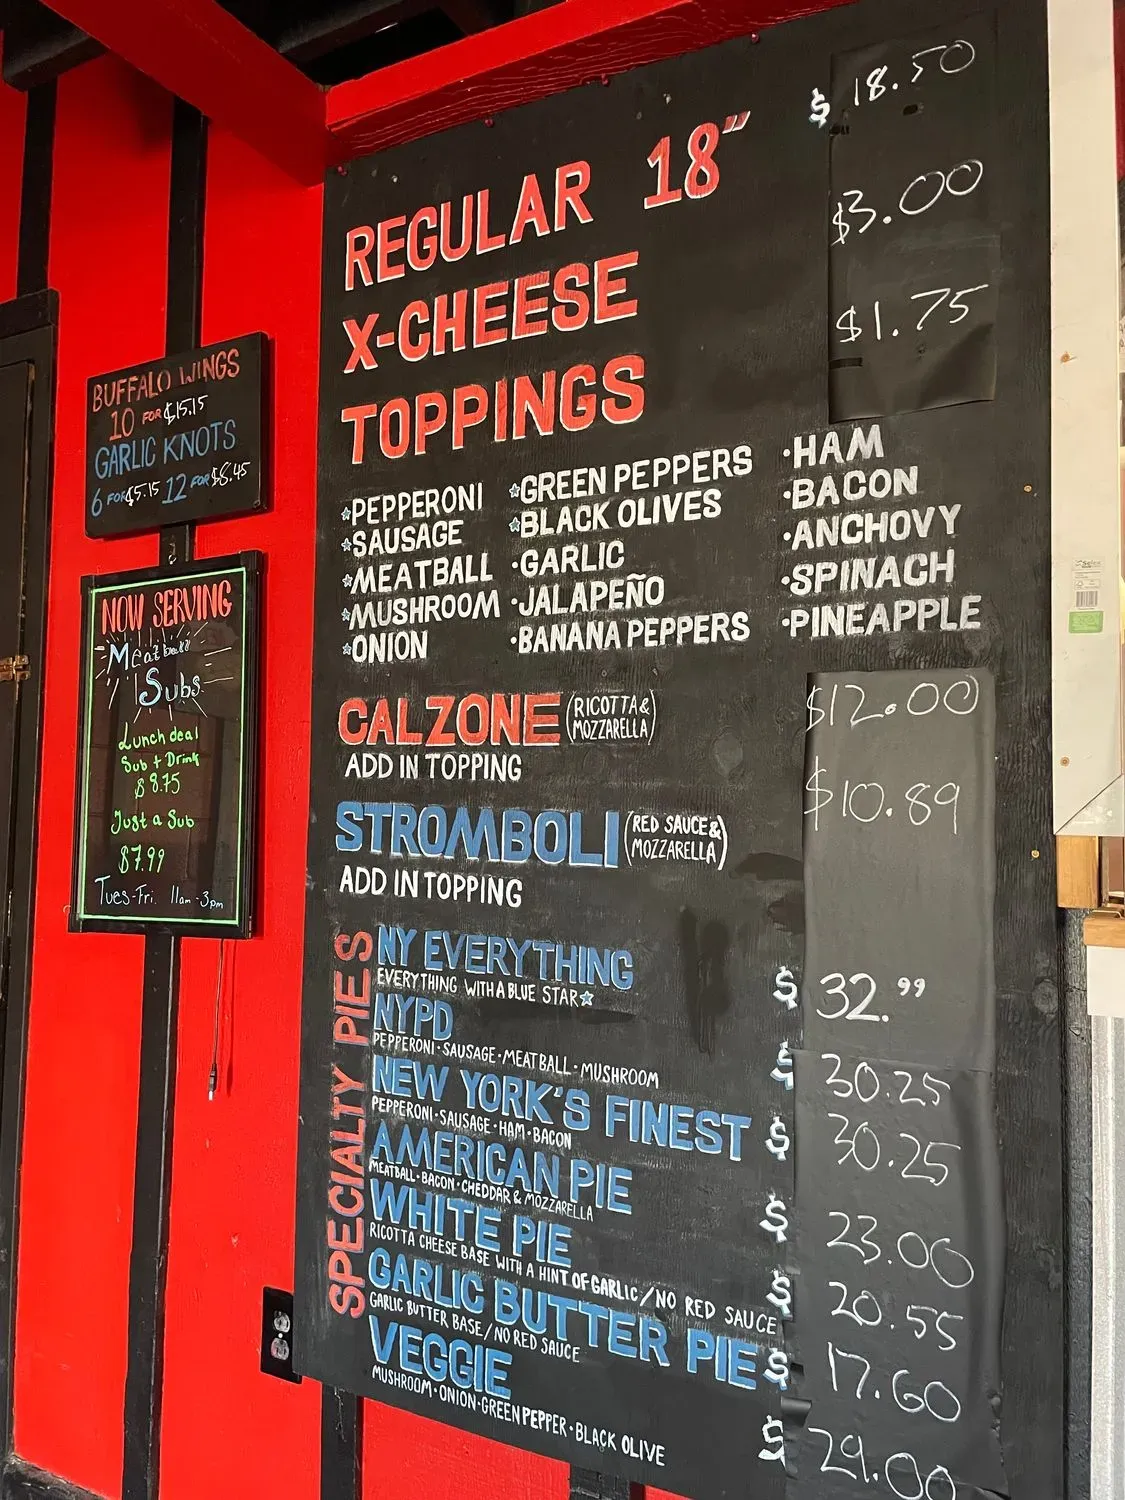 BUFFALO WINGS
10 FOR $15.15
GARLIC KNOTS
6 FOR $5.15 12 FOR $8.45
NOW SERVING
Meatball
Subs
Lunch deal
Sub + Drink
$8.75
Just a Sub
$7.99
Tues-Fri. 11am-3pm
REGULAR 18" $18.50
X-CHEESE $3.00
TOPPINGS $1.75
☆PEPPERONI
☆SAUSAGE
☆MEATBALL
☆MUSHROOM
☆ONION
☆GREEN PEPPERS
☆BLACK OLIVES
·GARLIC
·JALAPEÑO
·BANANA PEPPERS
·HAM
·BACON
·ANCHOVY
·SPINACH
·PINEAPPLE
CALZONE (RICOTTA & MOZZARELLA) $12.00
ADD IN TOPPING
STROMBOLI (RED SAUCE & MOZZARELLA) $10.89
ADD IN TOPPING
SPECIALTY PIES
NY EVERYTHING $32.99
EVERYTHING WITH A BLUE STAR☆
NYPD $30.25
PEPPERONI·SAUSAGE·MEATBALL·MUSHROOM
NEW YORK'S FINEST $30.25
PEPPERONI·SAUSAGE·HAM·BACON
AMERICAN PIE $23.00
MEATBALL·BACON·CHEDDAR & MOZZARELLA
WHITE PIE $20.55
RICOTTA CHEESE BASE WITH A HINT OF GARLIC/NO RED SAUCE
GARLIC BUTTER PIE $17.60
GARLIC BUTTER BASE/NO RED SAUCE
VEGGIE $29.00
MUSHROOM·ONION·GREEN PEPPER·BLACK OLIVE